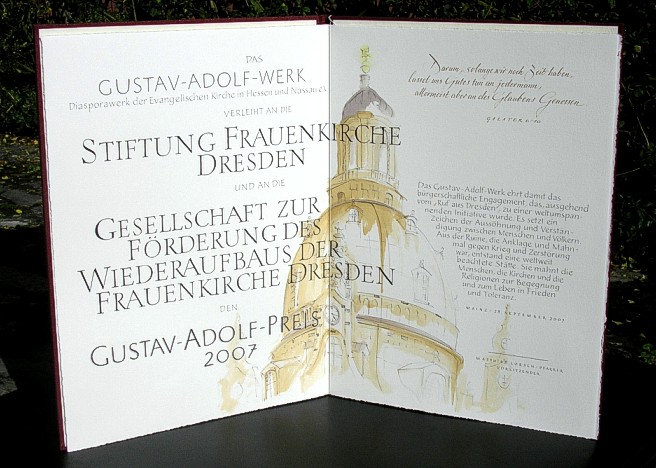 DAS
GUSTAV-ADOLF-WERK
Diasporawerk der Evangelischen Kirche in Hessen und Nassau e.V.
VERLEIHT AN DIE
STIFTUNG FRAUENKIRCHE
DRESDEN
UND AN DIE
GESELLSCHAFT ZUR
FÖRDERUNG DES
WIEDERAUFBAUS DER
FRAUENKIRCHE DRESDEN
DEN
GUSTAV-ADOLF-PREIS
2007
Darum, solange wir noch Zeit haben,
lasset uns Gutes tun an jedermann,
allermeist aber an des Glaubens Genossen.
Das Gustav-Adolf-Werk ehrt damit das
bürgerschaftliche Engagement, das, ausgehend
vom „Ruf aus Dresden", zu einer weltumspan-
nenden Initiative wurde. Es setzt ein
Zeichen der Aussöhnung und Verstän-
digung zwischen Menschen und Völkern.
Aus der Ruine, die Anklage und Mahn-
mal gegen Krieg und Zerstörung
war, entstand eine weltweit
beachtete Stätte. Sie mahnt die
Menschen, die Kirchen und die
Religionen zur Begegnung
und zum Leben in Frieden
und Toleranz.
MAINZ · 28. SEPTEMBER 2007
VORSITZENDER